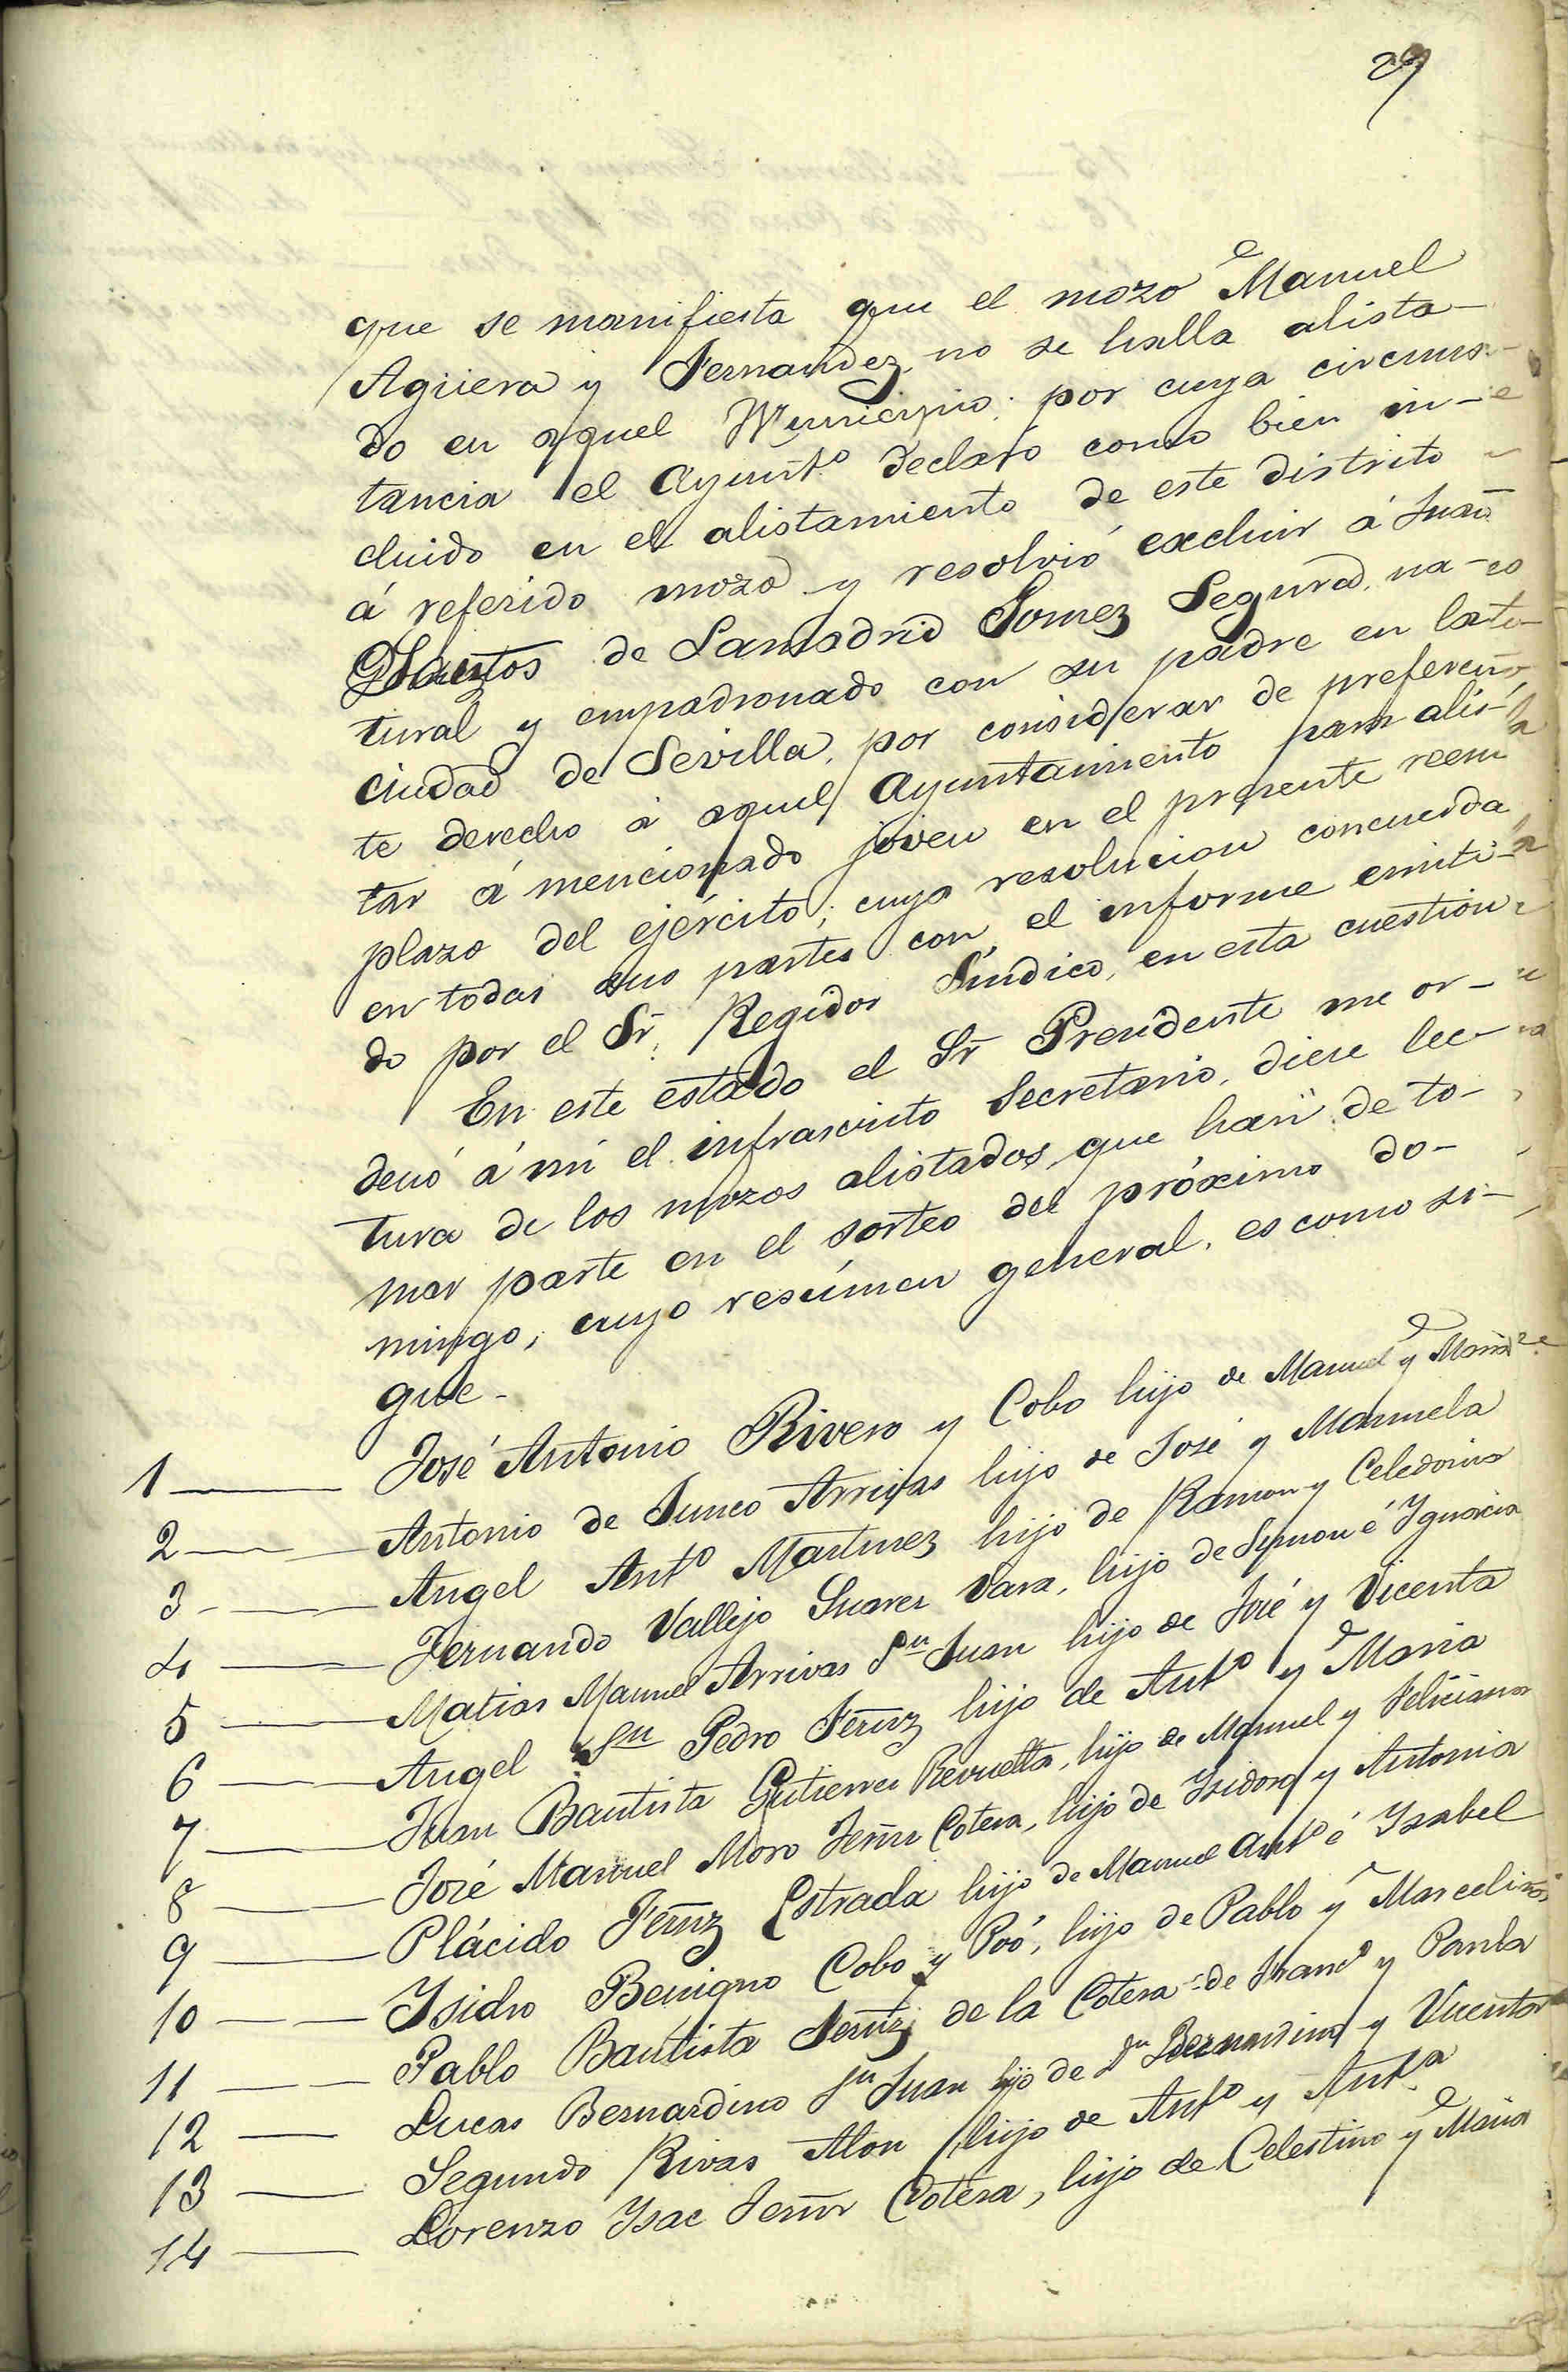 29
que se manifiesta que el mozo Manuel
Agüera y Fernandez no se halla alista-
do en aquel Municipio; por cuya circuns-
tancia el Ayuntº declaró como bien in-
cluido en el alistamiento de este distrito
á referido mozo y resolvió excluir á Juan
Santos de Lamadrid Gomez Segura, na-
tural y empadronado con su padre en la
ciudad de Sevilla, por considerar de preferen-
te derecho á aquel Ayuntamiento para alis-
tar á mencionado joven en el presente reem-
plazo del ejército; cuya resolucion concuerda
en todas sus partes con el informe emiti-
do por el Sr. Regidor Síndico, en esta cuestion
En este estado el Sr Presidente me or-
denó á mi el infrascrito Secretario, diese lec-
tura de los mozos alistados, que han de to-
mar parte en el sorteo del próximo do-
mingo, cuyo resúmen general, es como si-
gue-
1 — José Antonio Rivero y Cobo hijo de Manuel y Maria
2 — Antonio de Junco Arrivas hijo de José y Manuela
3 — Angel Antº Martinez hijo de Ramon y Celedonia
4 — Fernando Vallejo Suarez Vara, hijo de Symon é Ygnacia
5 — Matias Manuel Arrivas Sn Juan hijo de José y Vicenta
6 — Angel Sn Pedro Fernz hijo de Antº y Maria
7 — Juan Bautista Gutierrez Revuelta, hijo de Manuel y Feliciana
8 — José Manuel Moro Fernz Cotera, hijo de Ysidoro y Antonia
9 — Plácido Fernz Estrada hijo de Manuel Antº é Ysabel
10 — Ysidro Benigno Cobo y Poó, hijo de Pablo y Marcelina
11 — Pablo Bautista Fernz de la Cotera de Francº y Paula
12 — Lucas Bernardino Sn Juan hijo de Dn Bernardino y Vicenta
13 — Segundo Rivas Alon hijo de Antº y Antª
14 — Lorenzo Ysac Fernz Cotera, hijo de Celestino y Maria